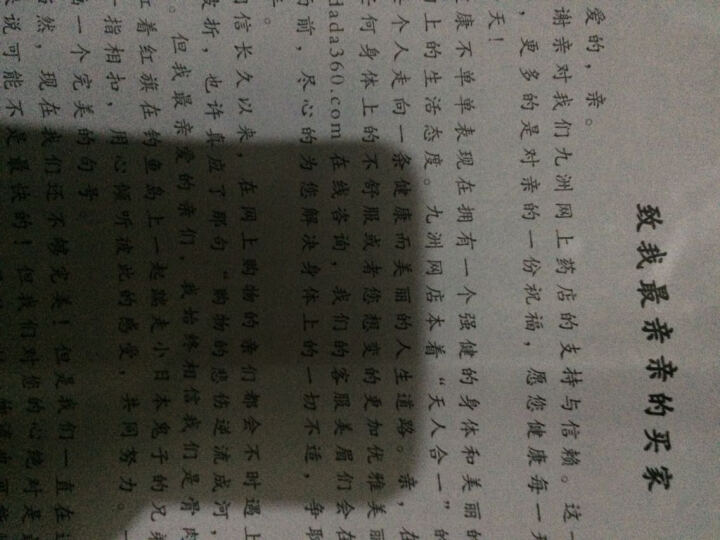 致我最亲亲的买家
爱的，亲。
谢亲对我们九洲网上药店的支持与信赖。这一
，更多的是对亲的一份祝福，愿您健康每一天
天！
康不单单表现在拥有一个强健的身体和美丽的
向上的生活态度。九洲网店本着“天人合一”的
个人走向一条健康而美丽的人生道路。亲，在
何身体上的不舒服或者您想变的更加优雅美丽
dada360.com 在线咨询，我们的客服美眉们会在
前，尽心的为您解决身体上的一切不适，争取
信长久以来，在网上购物的亲们都会不时遇上
波折，也许真应了那句“购物的悲伤逆流成河，
。但我最亲爱的亲们，我始终相信我们是骨肉
着红旗在钓鱼岛上一起踹走小日本鬼子的兄弟
指相扣，用心倾听彼此的感受，共同努力。一
一个完美的句号。
然，现在我们还不够完美！但是我们一直在
说可能不是最快的！但我们对您的心绝对是最